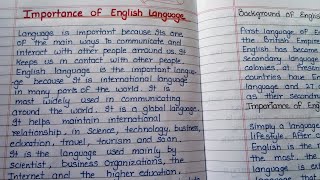 Importance of English Language
Language is important because its one
of the main ways to communicate and
interact with other people arround us. It
keeps us in contact with other people.
English language is the important langua-
ge because It is international language
in many parts of the world. It is
most widely used in communicating
around the world. It is a global language.
It helps maintain international
relationship, in Science, technology, business,
education, travel, tourism and so on.
It is the language used mainly by
Scientist, business organizations, the
Internet and the higher education,
Background of English
First language of E
the British Empire
English has become
secondary language
colonies. at Presen
countries have En
language and 27
as their second
Importance of Engli
Simply a language
lifestyle. After,
English is the
the most
is the language
English